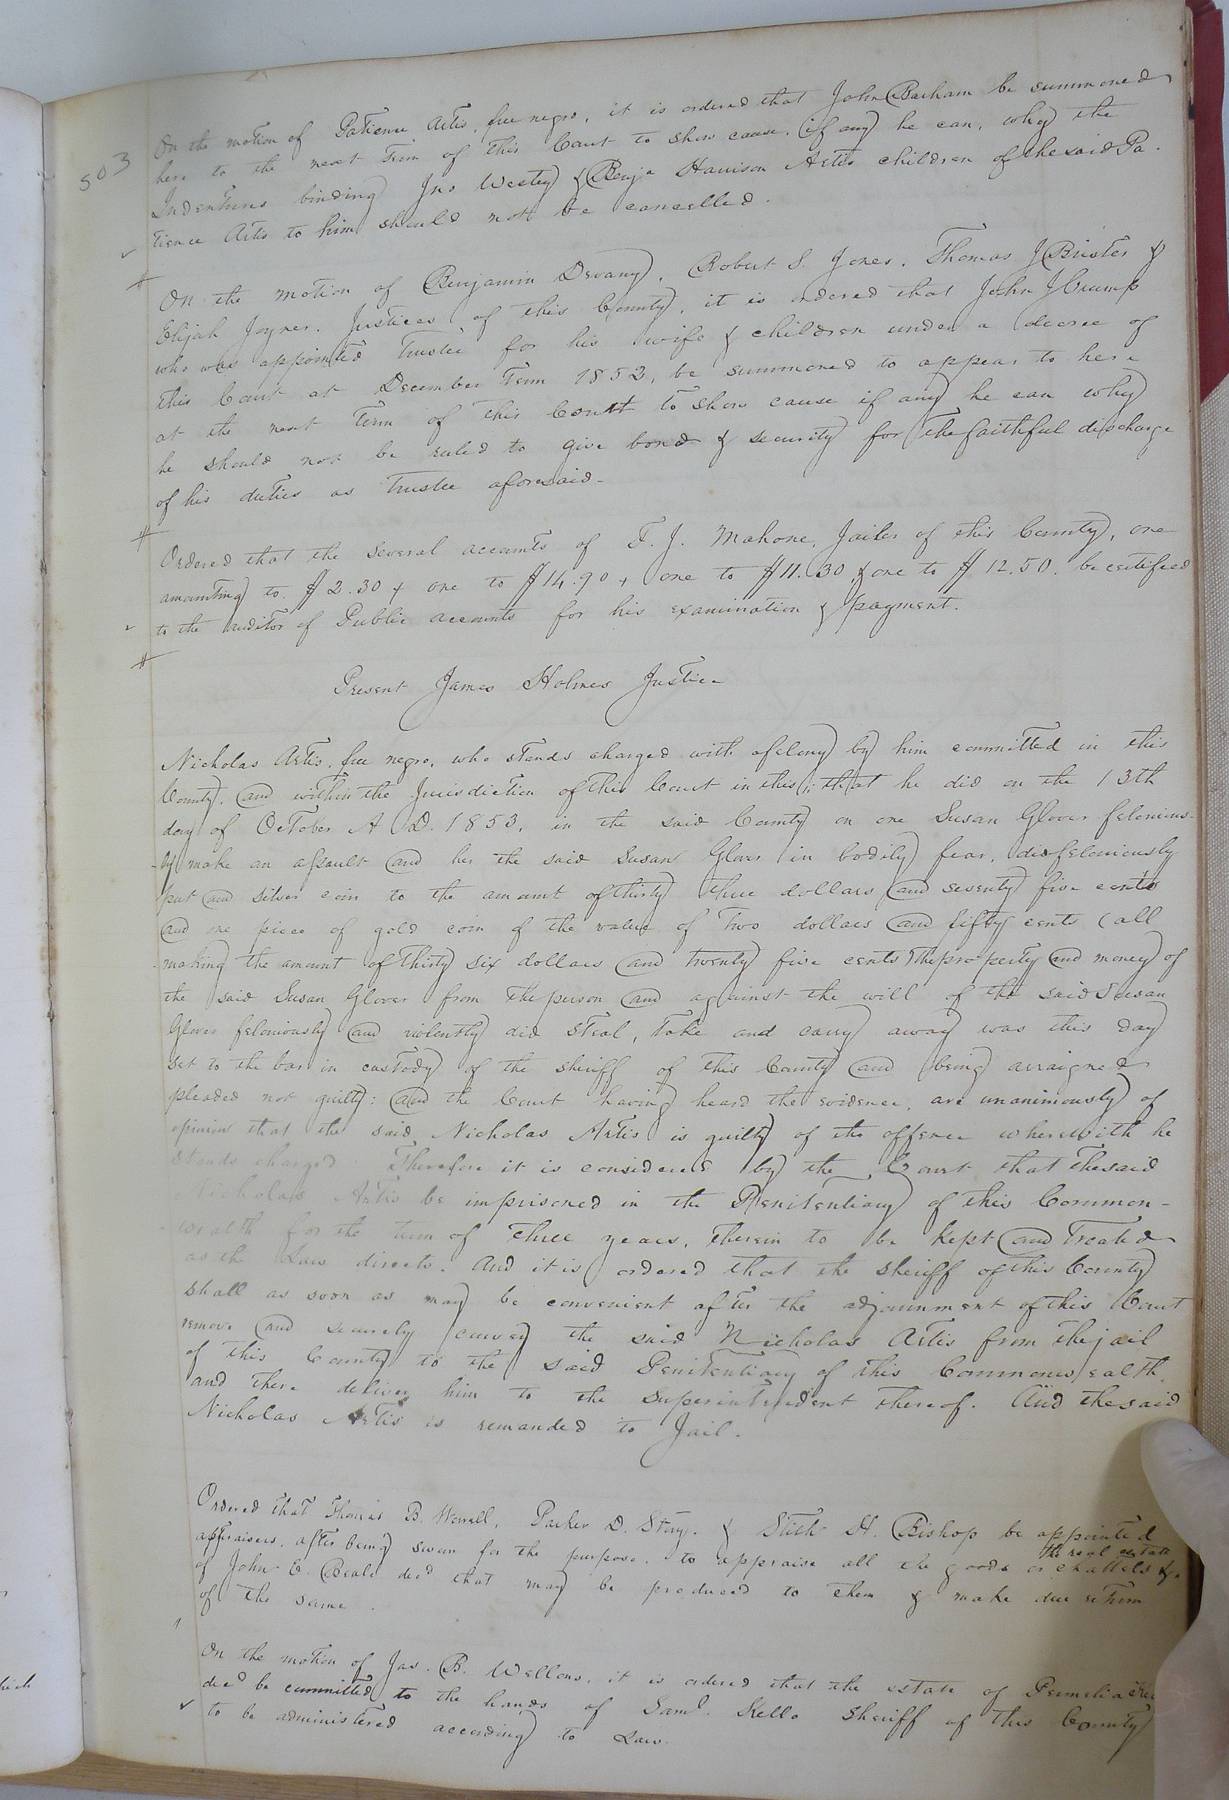 503
On the motion of Patience Artis, free negro, it is ordered that John Barham be summoned
here to the next Term of this Court to show cause, (if any) he can, why the
Indentures binding Jno Wesley & Benja Harrison Artis children of the said Pa-
tience Artis to him should not be cancelled.
On the motion of Benjamin Devany, Robert S. Jones, Thomas J Brister &
Elijah Joyner, Justices of this County, it is ordered that John J Crump
who was appointed Trustee for his wife & children under a decree of
this Court at December Term 1852, be summoned to appear to here
at the next Term of this Court to show cause if any he can why
he should not be ruled to give bond & security for the faithful discharge
of his duties as Trustee aforesaid-
Ordered that the several accounts of T. J. Mahone, Jailer of this County, one
amounting to $2.30 & one to $14.90, one to $11.30, & one to $12.50. be certified
to the auditor of Public accounts for his examination & payment.
Present James Holmes Justice
Nicholas Artis, free negro, who stands charged with a felony by him committed in this
County, and within the Jurisdiction of this Court in this; that he did on the 13th
day of October A D. 1853, in the said County on one Susan Glover felonious-
-ly make an assault and her the said Susan Glover in bodily fear, did feloniously
put and silver coin to the amount of thirty three dollars and seventy five cents
and one piece of gold coin of the value of two dollars and fifty cents (all
making the amount of thirty six dollars and twenty five cents) the property and money of
the said Susan Glover from the person and against the will of the said Susan
Glover feloniously and violently did steal, take and carry away was this day
set to the bar in custody of the sheriff of this County and being arraigned
pleaded not guilty: and the Court having heard the evidence, are unanimously of
opinion that the said Nicholas Artis is guilty of the offence wherewith he
stands charged Therefore it is considered by the Court that the said
Nicholas Artis be imprisoned in the Penitentiary of this Common-
wealth for the term of three years, therein to be kept and treated
as the Law directs. And it is ordered that the sheriff of this County
shall as soon as may be convenient after the adjournment of this Court
remove and securely convey the said Nicholas Artis from the jail
of this County to the said Penitentiary of this Commonwealth,
and there deliver him to the superintendent thereof. And the said
Nicholas Artis is remanded to Jail.
Ordered that Thomas B. Worrell, Parker D. & Stith H. Bishop be appointed
appraisers, after being sworn for the purpose, to appraise all the goods or chattels &
the real estate
of John E. Beale decd that may be produced to them & make due return
of the same.
On the motion of Jas. B. Wellons, it is ordered that the estate of Permelia
decd be committed to the hands of Saml. Kello Sheriff of this County
to be administered according to Law.